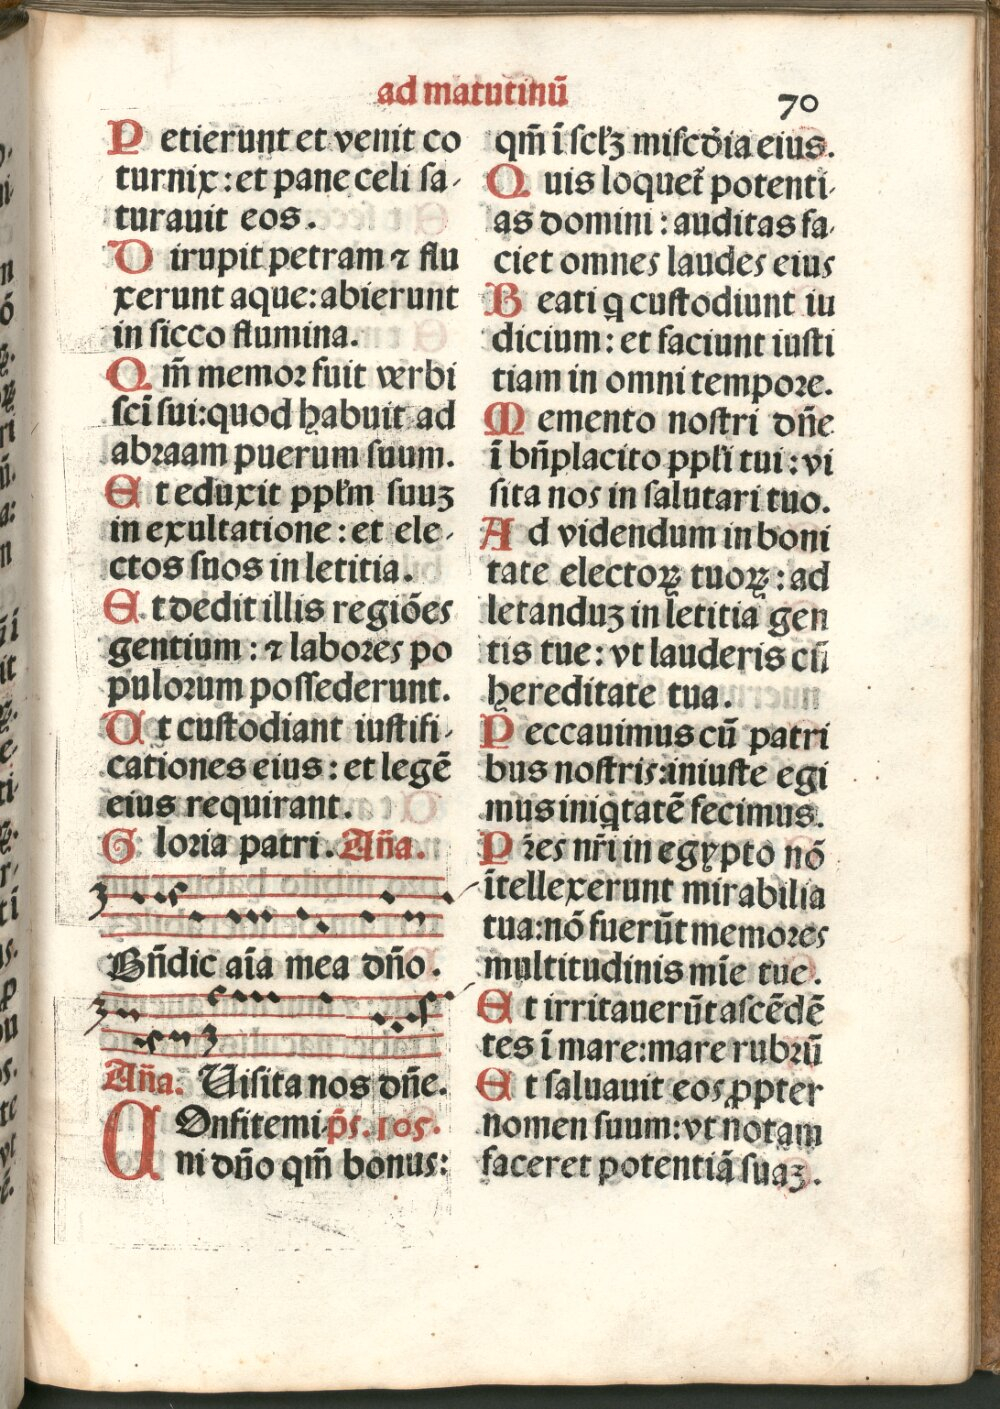 ad matutinū
70
Petierunt et venit co
turnix: et pane celi sa-
turauit eos.
Dirupit petram ⁊ flu
xerunt aque: abierunt
in sicco flumina.
Qm̄ memor fuit verbi
scī sui: quod habuit ad
abraam puerum suum.
Et eduxit ppłm suuꝫ
in exultatione: et ele-
ctos suos in letitia.
Et dedit illis regiōes
gentium: ⁊ labores po
pulorum possederunt.
Ut custodiant iustifi-
cationes eius: et legē
eius requirant.
Gloria patri. Añа.
Bñdic aīa mea dño.
Aña. Uisita nos dñe.
COnfitemi p̄s. 105.
ni dño qm̄ bonus:
qm̄ ī sclꝫ misc̄dia eius.
Quis loquet᷑ potenti-
as domini: auditas fa-
ciet omnes laudes eius
Beati q custodiunt iu
dicium: et faciunt iusti
tiam in omni tempore.
Memento nostri dñe
ī bñplacito ppłi tui: vi
sita nos in salutari tuo.
Ad videndum in boni
tate electoꝝ tuoꝝ: ad
letanduꝫ in letitia gen
tis tue: vt lauderis cū
hereditate tua.
Peccauimus cū patri
bus nostris: iniuste egi
mus iniq̇tatē fecimus.
Pr̄es nr̄i in egypto nō
ītellexerunt mirabilia
tua: nō fuerūt memores
multitudinis mīe tue.
Et irritauerūt ascēdē
tes ī mare: mare rubrū
Et saluauit eos ꝓpter
nomen suum: vt notam
faceret potentiā suaꝫ.